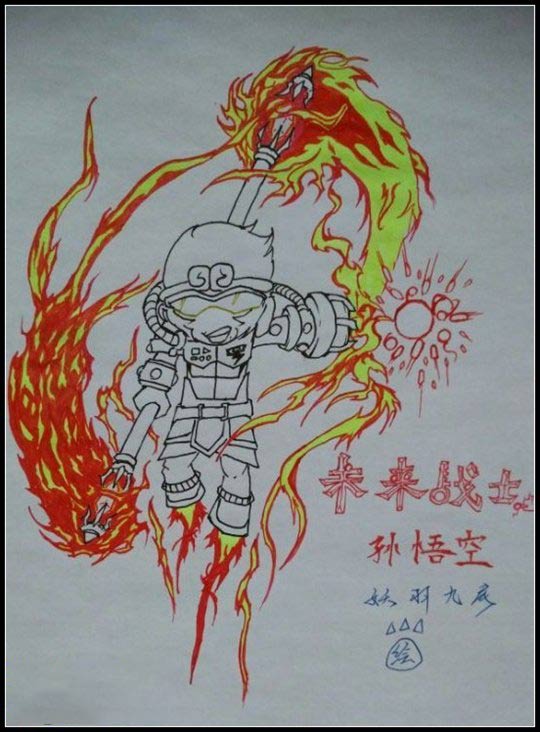 未来战士
孙悟空
妖羽九彦
绘